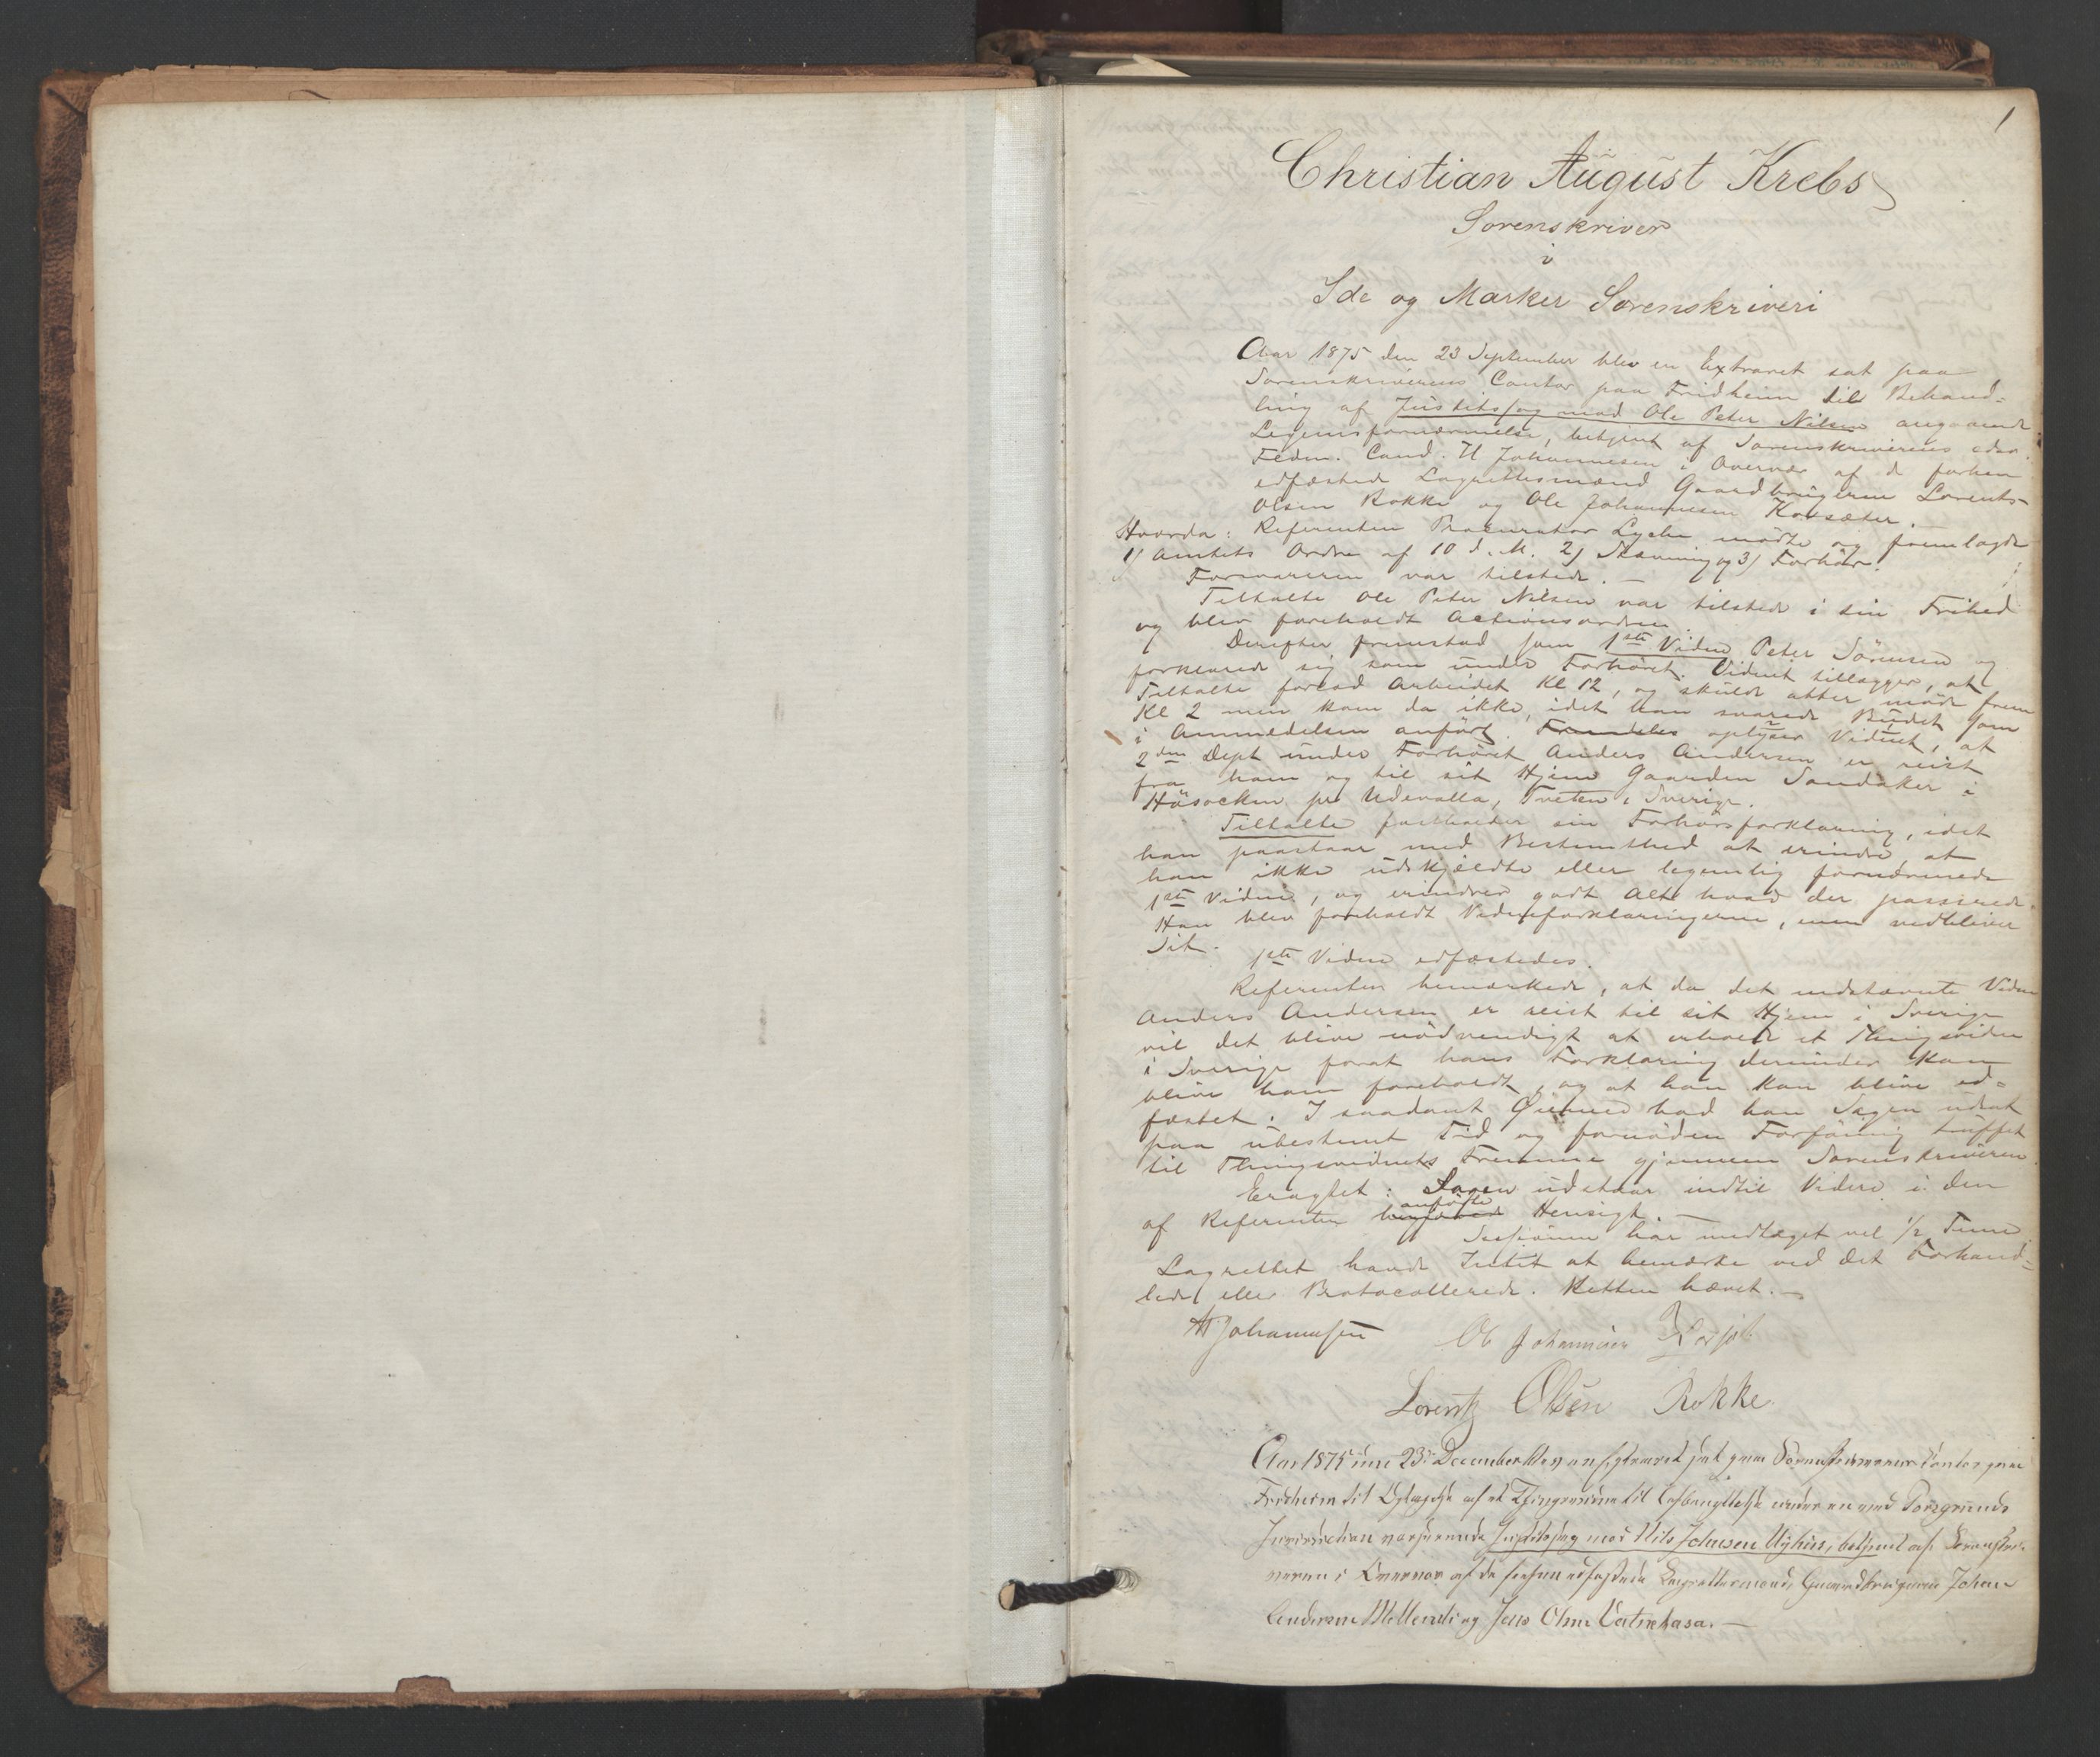 1
Christian August Krebs
Sorenskriver
i
Ide og Marker Sorenskriveri
Aar 1875 den 23 September blev en Extraret sat paa
Sorenskriverens Contor paa Fridheim til Behand-
ling af Justitssag mod Ole Peter Nilsen angaaende
Legemsfornærmelse, betjent af Sorenskriverens edsv.
Fuldm. Cand. H Johannesen i Overvær af de forhen
edfæstede Lagrettesmænd Gaardbrugerne Lorents
Olsen Rokke og Ole Johannesen Korsæter.
Hvorda: Referenten Procurator Lyche mødte og fremlagde
1) Amtets Ordre af 10 d. M. 2) Stævning og 3) Forhør.
Forsvareren var tilstede. —
Tiltalte Ole Peter Nilsen var tilstede i sin Frihed
og blev foreholdt Actionsordren.
Derefter fremstod som 1ste Vidne Peter Sørensen og
forklarede sig som under Forhøret. Vidnet tillægger, at
Tiltalte forlod Arbeidet Kl 12, og skulde atter møde frem
Kl 2 men kom da ikke, idet han svarede Budet som
i Anmeldelsen anført. Fremdeles oplyser Vidnet, at
2den Dept under Forhøret Anders Andersen er reist
fra ham og til sit Hjem Gaarden Sandaker i
Häsocken pr Udevalla, Tveten i Sverige.
Tiltalte fastholder sin Forhørsforklaring, idet
han paastaar med Bestemthed at erindre, at
han ikke udskjeldte eller legemlig fornærmede
1ste Vidne, og erindrer godt Alt hvad der passerede.
Han blev foreholdt Vidneforklaringerne, men vedbliver
Sit.
1ste Vidne edfæstedes.
Referenten bemærkede, at da det indstævnte Vidne
Anders Andersen er reist til sit Hjem i Sverige
vil det blive nødvendigt at erholde et Thingsvidne
i Sverige forat hans Forklaring derunder kan
blive ham foreholdt, og at han kan blive ed-
fæstet. I saadant Øiemed bad han Sagen udsat
paa ubestemt Tid og fornøden Forføining truffet
til Thingsvidnets Fremme gjennem Sorenskriveren.
Eragtet: Sagen udstaar indtil Videre i den
af Referenten anførte Hensigt. —
Sessionen har medtaget vel 1/2 Time
Lagrettet havde Intet at bemærke ved det Forhand-
lede eller Protocollerede. Retten hævet. —
H Johannesen Ole Johannesen Korsæt
Lorentz Olsen Rokke
Aar 1875 den 23de December blev en Extraret sat paa Sorenskriverens Contor paa
Fridheim til Optagelse af et Thingsvidne til Afbenyttelse under en ved Porsgrunds
Jurisdiction verserende Justitssag mod Nils Johnsen Myhus, betjent af Sorenskri-
veren i Overvær af de forhen edfæstede Lagrettesmænd, Gaardbrugerne Johan
Andersen og Jens Olsen